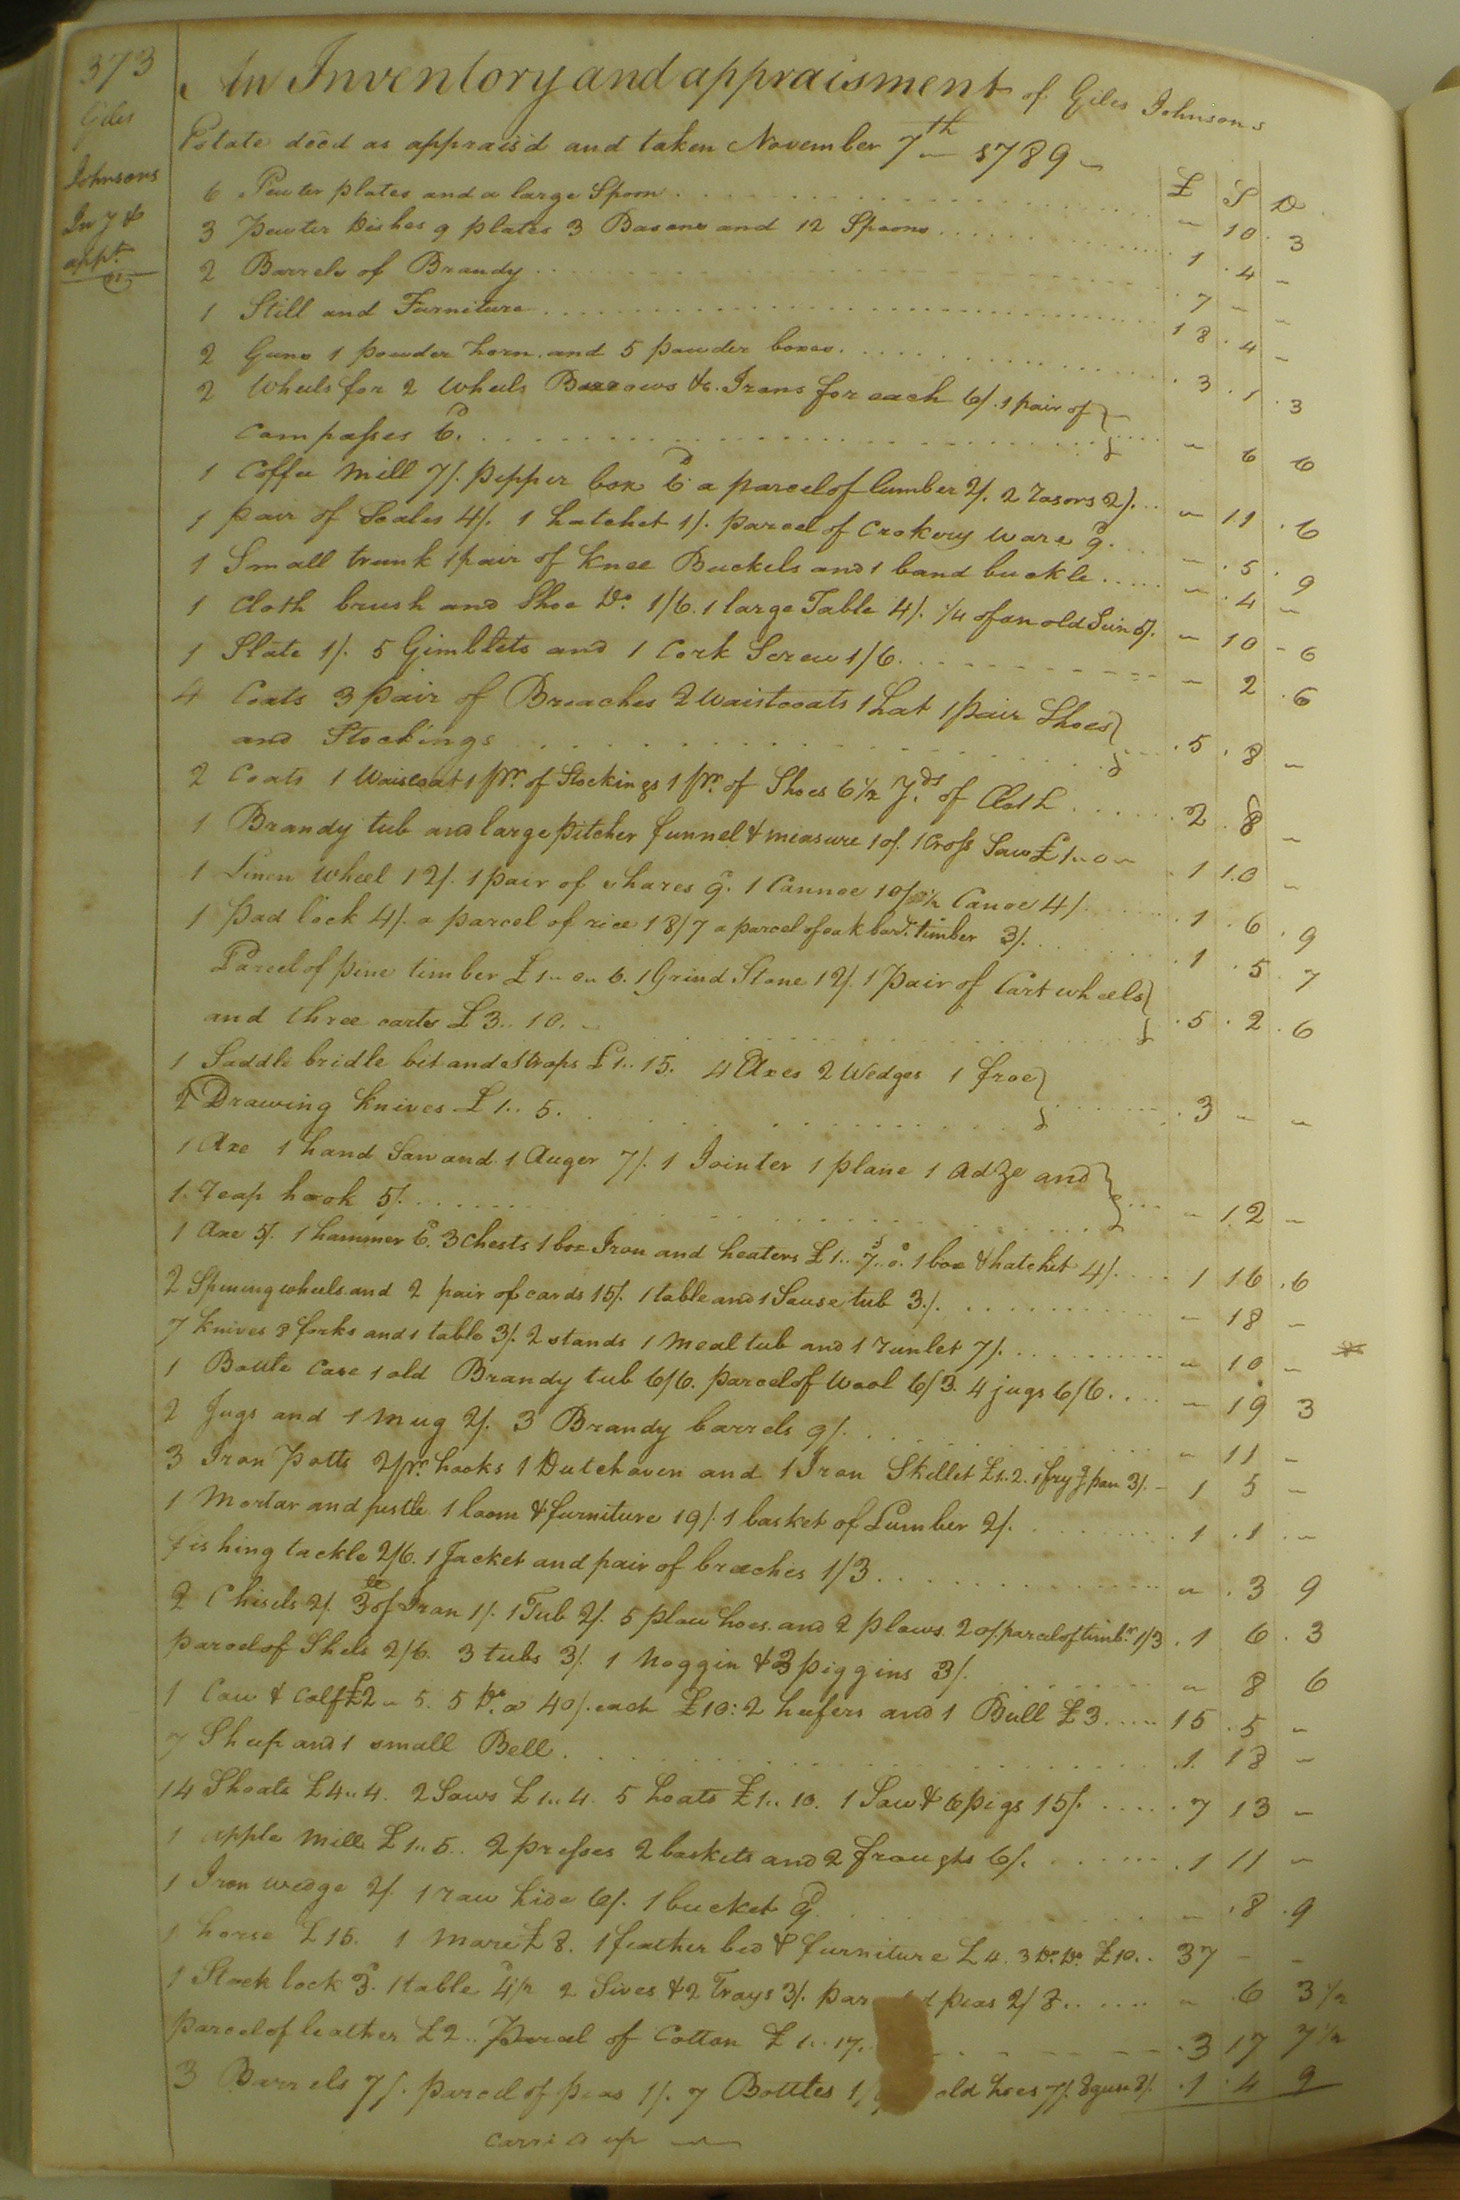 373
Giles
Johnsons
Inv &
appt.
An Inventory and appraisment of Giles Johnsons
Estate decd as apprais'd and taken November 7th 1789
£ S D
6 Pewter plates and a large Spoon - 10 . 3
3 Pewter Dishes 9 plates 3 Basons and 12 Spoons 1 . 4 -
2 Barrels of Brandy 7 - -
1 Still and Furniture 18 . 4 -
2 Guns 1 powder horn and 5 powder boxes 3 . 1 . 3
2 Wheels for 2 Wheels Barrows &c. Irons for each 6/. 1 pair of
Compasses 6d. - 6 6
1 Coffee Mill 7/. pepper box 6d a parcel of lumber 2/. 2 rasors 2/. - 11 . 6
1 pair of Scales 4/. 1 hatchet 1/. parcel of Crokery ware 9d. - . 5 . 9
1 Small trunk 1 pair of knee Buckels and 1 band buckle - . 4 -
1 Cloth brush and Shoe Do. 1/6. 1 large Table 4/. 1/4 of an old Sein 5/. - 10 - 6
1 Slate 1/. 5 Gimblets and 1 Cork Screw 1/6. - 2 . 6
4 Coats 3 pair of Breaches 2 Waistcoats 1 hat 1 pair Shoes
and Stockings 5 . 8 -
2 Coats 1 Waiscoat 1 pr. of Stockings 1 pr. of Shoes 6 1/2 Yds. of Cloth 2 . 8 -
1 Brandy tub and large pitcher funnel & measure 10/. 1 Cross Saw £1..0 - 1 10 -
1 Linen Wheel 12/. 1 pair of shares 9d. 1 Cannoe 10/ 1/2 Canoe 4/. 1 . 6 . 9
1 pad lock 4/. a parcel of rice 18/7 a parcel of oak timber 3/. 1 . 5 . 7
Parcel of pine timber £1..0..6. 1 Grind Stone 12/. 1 Pair of Cart wheels
and three carts £3..10. 5 . 2 . 6
1 Saddle bridle bit and straps £1..15. 4 Axes 2 Wedges 1 froe
2 Drawing knives £1..5. 3 - -
1 Axe 1 hand Saw and 1 Auger 7/. 1 Jointer 1 plane 1 adze and
1 reap hook 5/. - 12 -
1 Axe 5/. 1 hammer 6d. 3 Chests 1 box Iron and heaters £1..7..0. 1 box & hatchet 4/. 1 16 . 6
2 Spining wheels and 2 pair of cards 15/. 1 table and 1 Sause tub 3/. - 18 -
7 knives 8 forks and 1 table 3/. 2 stands 1 Meal tub and 1 runlet 7/. - 10 -
1 Bottle Case 1 old Brandy tub 6/6. parcel of Wool 6/3. 4 jugs 6/6. - 19 3
2 Jugs and 1 Mug 2/. 3 Brandy barrels 9/. - 11 -
3 Iron Potts 2 pr. hooks 1 Dutch oven and 1 Iron Skillet £1..2. 1 fryg pan 3/. 1 5 -
1 Mortar and pestle 1 loom & furniture 19/. 1 basket of Lumber 2/. 1 . 1 . -
fishing tackle 2/6. 1 Jacket and pair of breaches 1/3. - . 3 9
2 Chisels 2/. 3 lb of Iron 1/. 1 Tub 2/. 5 plow hoes and 2 plows 20/. parcel of timbr. 1/3 . 1 6 . 3
parcel of Shels 2/6. 3 tubs 3/. 1 Noggin & 3 piggins 3/. - 8 6
1 Cow & Calf £2 - 5. 5 Do. a 40/. each £10: 2 heifers and 1 Bull £3 15 . 5 -
7 Sheep and 1 small Bell . 1 . 18 -
14 Shoats £4..4. 2 Sows £1..4. 5 hoats £1..10. 1 Sow & 6 pigs 15/. . 7 13 -
1 apple Mill £1..5.. 2 presses 2 baskets and 2 fraughs 6/. . 1 11 -
1 Iron wedge 2/. 1 raw hide 6/. 1 bucket 9d - . 8 . 9
1 horse £15. 1 Mare £8. 1 feather bed & furniture £4. 3 Do. Do. £10.. 37 - -
1 Stock lock 3d. 1 table 4d 1/2 2 Sives & 2 Trays 3/. peas 2/8 - . 6 3 1/2
parcel of leather £2.. Parcel of Cotton £1..17. . 3 17 7 1/2
3 Barrels 7/. parcel of peas 1/. 7 Bottles old hoes 7/. . 1 . 4 9
carri'd up